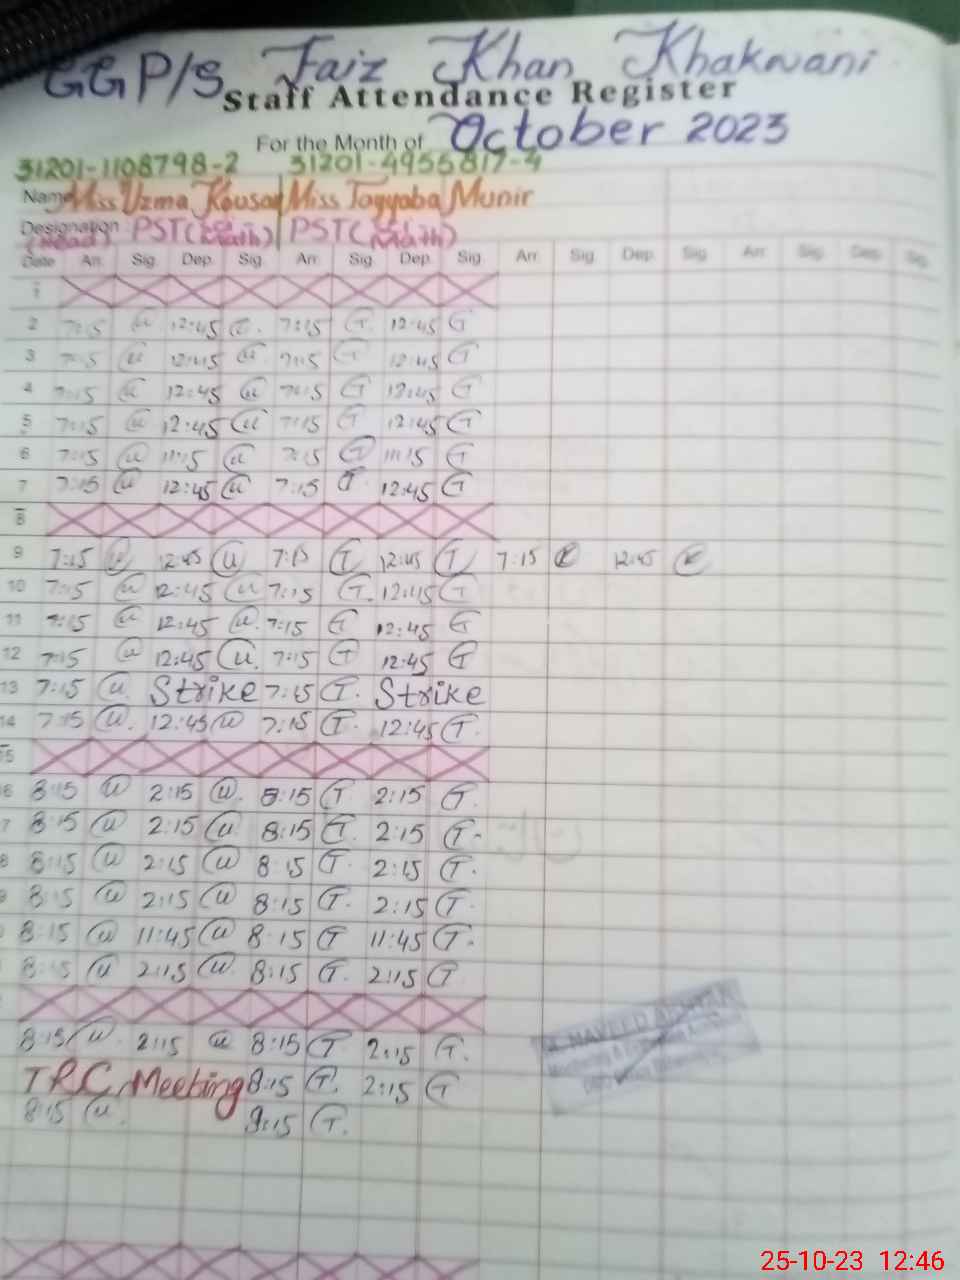 GGP/S Faiz Khan Khakwani
Staff Attendance Register
For the Month of October 2023
31201-1108798-2 31201-4955817-4
Name Miss Uzma Kousar Miss Tayyaba Munir
Designation (Head) PST(Math) PST(Math)
Date Arr. Sig. Dep. Sig. Arr. Sig. Dep. Sig. Arr. Sig. Dep. Sig. Arr. Sig. Dep. Sig.
1
2 7:15 u 12:45 7:15 T 12:45 T
3 7:15 u 12:45 u 7:15 T 12:45 T
4 7:15 u 12:45 u 7:15 T 12:45 T
5 7:15 u 12:45 u 7:15 T 12:45 T
6 7:15 u 11:15 u 7:15 T 11:15 T
7 7:15 u 12:45 u 7:15 T 12:45 T
8
9 7:15 u 12:45 u 7:15 T 12:45 T 7:15 12:45
10 7:15 u 12:45 u 7:15 T. 12:45 T
11 7:15 u 12:45 u. 7:15 T 12:45 T
12 7:15 u 12:45 u. 7:15 T 12:45 T
13 7:15 u. Strike 7:15 T. Strike
14 7:15 u. 12:45 u 7:15 T. 12:45 T.
15
6 8:15 u 2:15 u. 8:15 T. 2:15 T.
7 8:15 u 2:15 u. 8:15 T. 2:15 T-
8 8:15 u 2:15 u 8:15 T. 2:15 T.
8:15 u 2:15 u 8:15 T. 2:15 T.
8:15 u 11:45 u 8:15 T 11:45 T.
8:15 u 2:15 u. 8:15 T. 2:15 T
8:15 u. 2:15 u 8:15 T 2:15 T.
TRC Meeting 8:15 T. 2:15 T
8:15 u. 8:15 T.
NAVEED
25-10-23 12:46